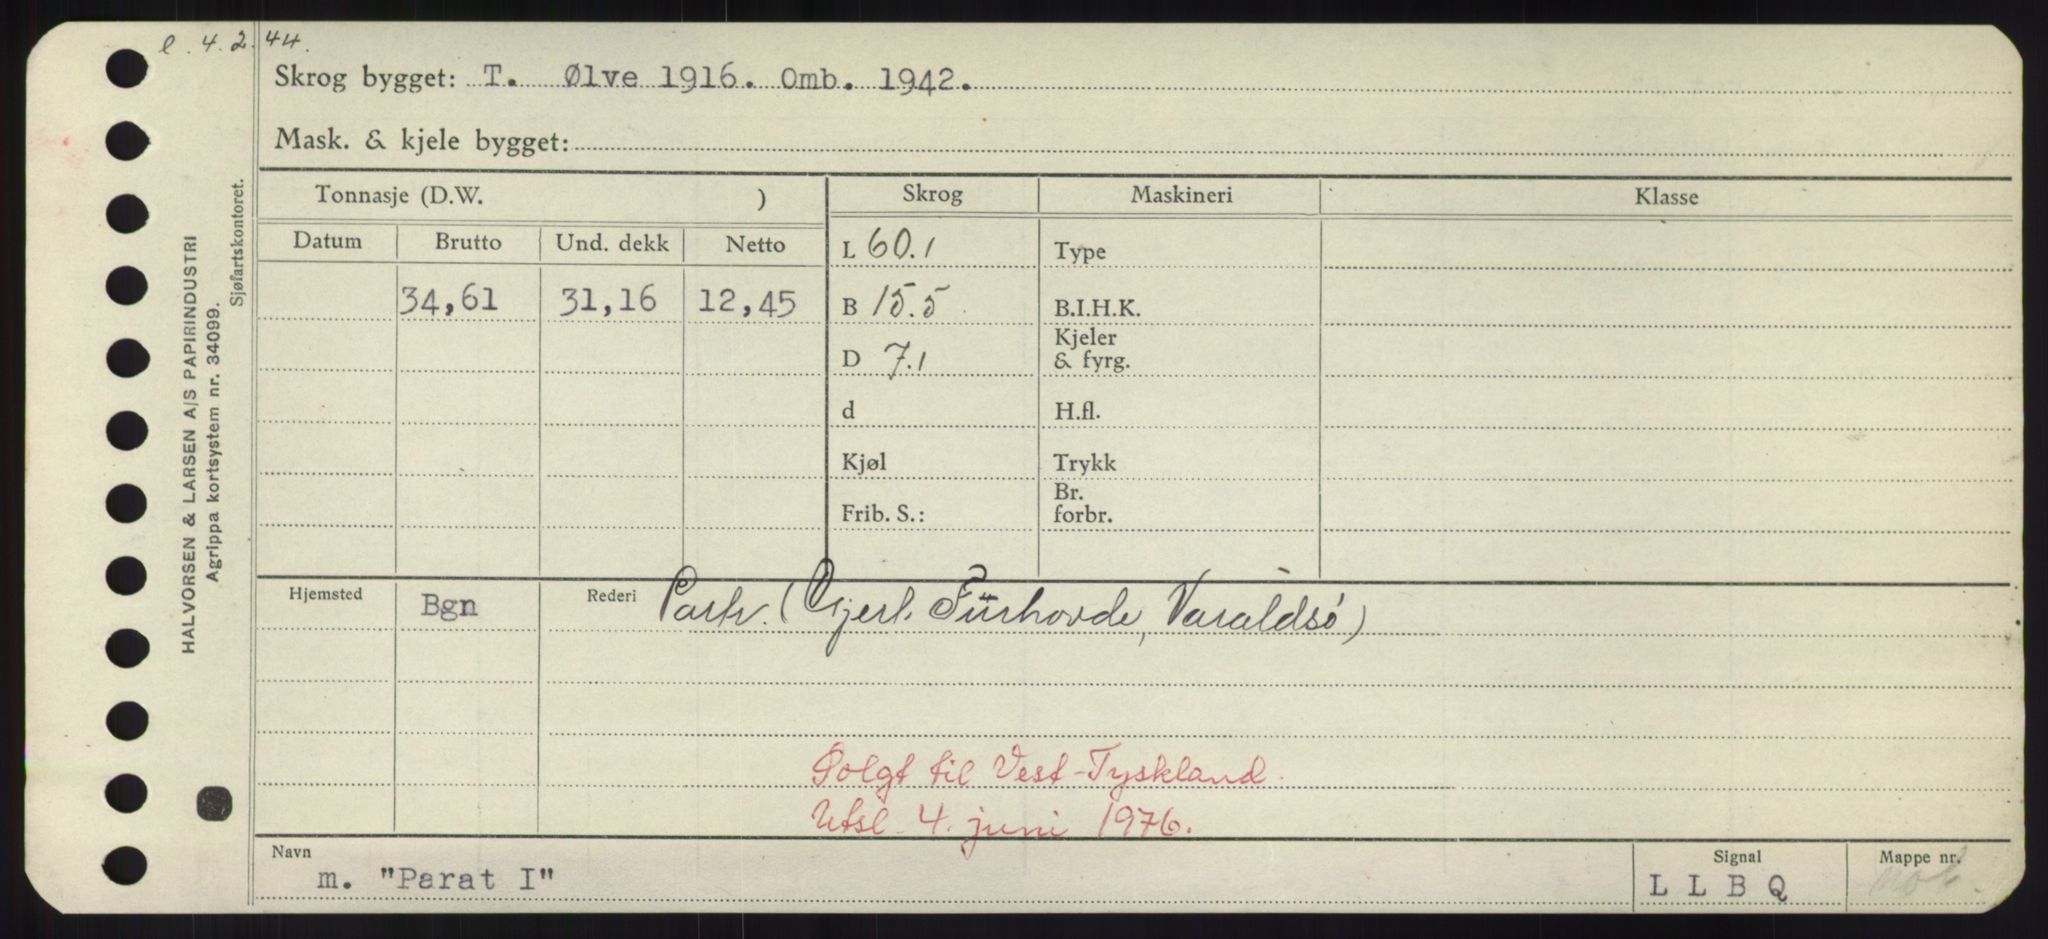 e. 4.2.44.
Skrog bygget: T. Ølve 1916. Omb. 1942.
Mask. & kjele bygget:
Tonnasje (D.W. ) Skrog Maskineri Klasse
Datum Brutto Und. dekk Netto L 60.1 Type
34,61 31,16 12,45 B 15.5 B.I.H.K.
D 7.1 Kjeler
& fyrg.
d H.fl.
Kjøl Trykk
Frib. S.: Br.
forbr.
Hjemsted Bgn Rederi Partr. (Gjert Furhovde, Varaldsö)
Solgt til Vest-Tyskland.
Utsl. 4. juni 1976.
Navn Signal Mappe nr.
m. "Parat I" L L B Q
HALVORSEN & LARSEN A/S PAPIRINDUSTRI
Agrippa kortsystem nr. 34099.
Sjøfartskontoret.